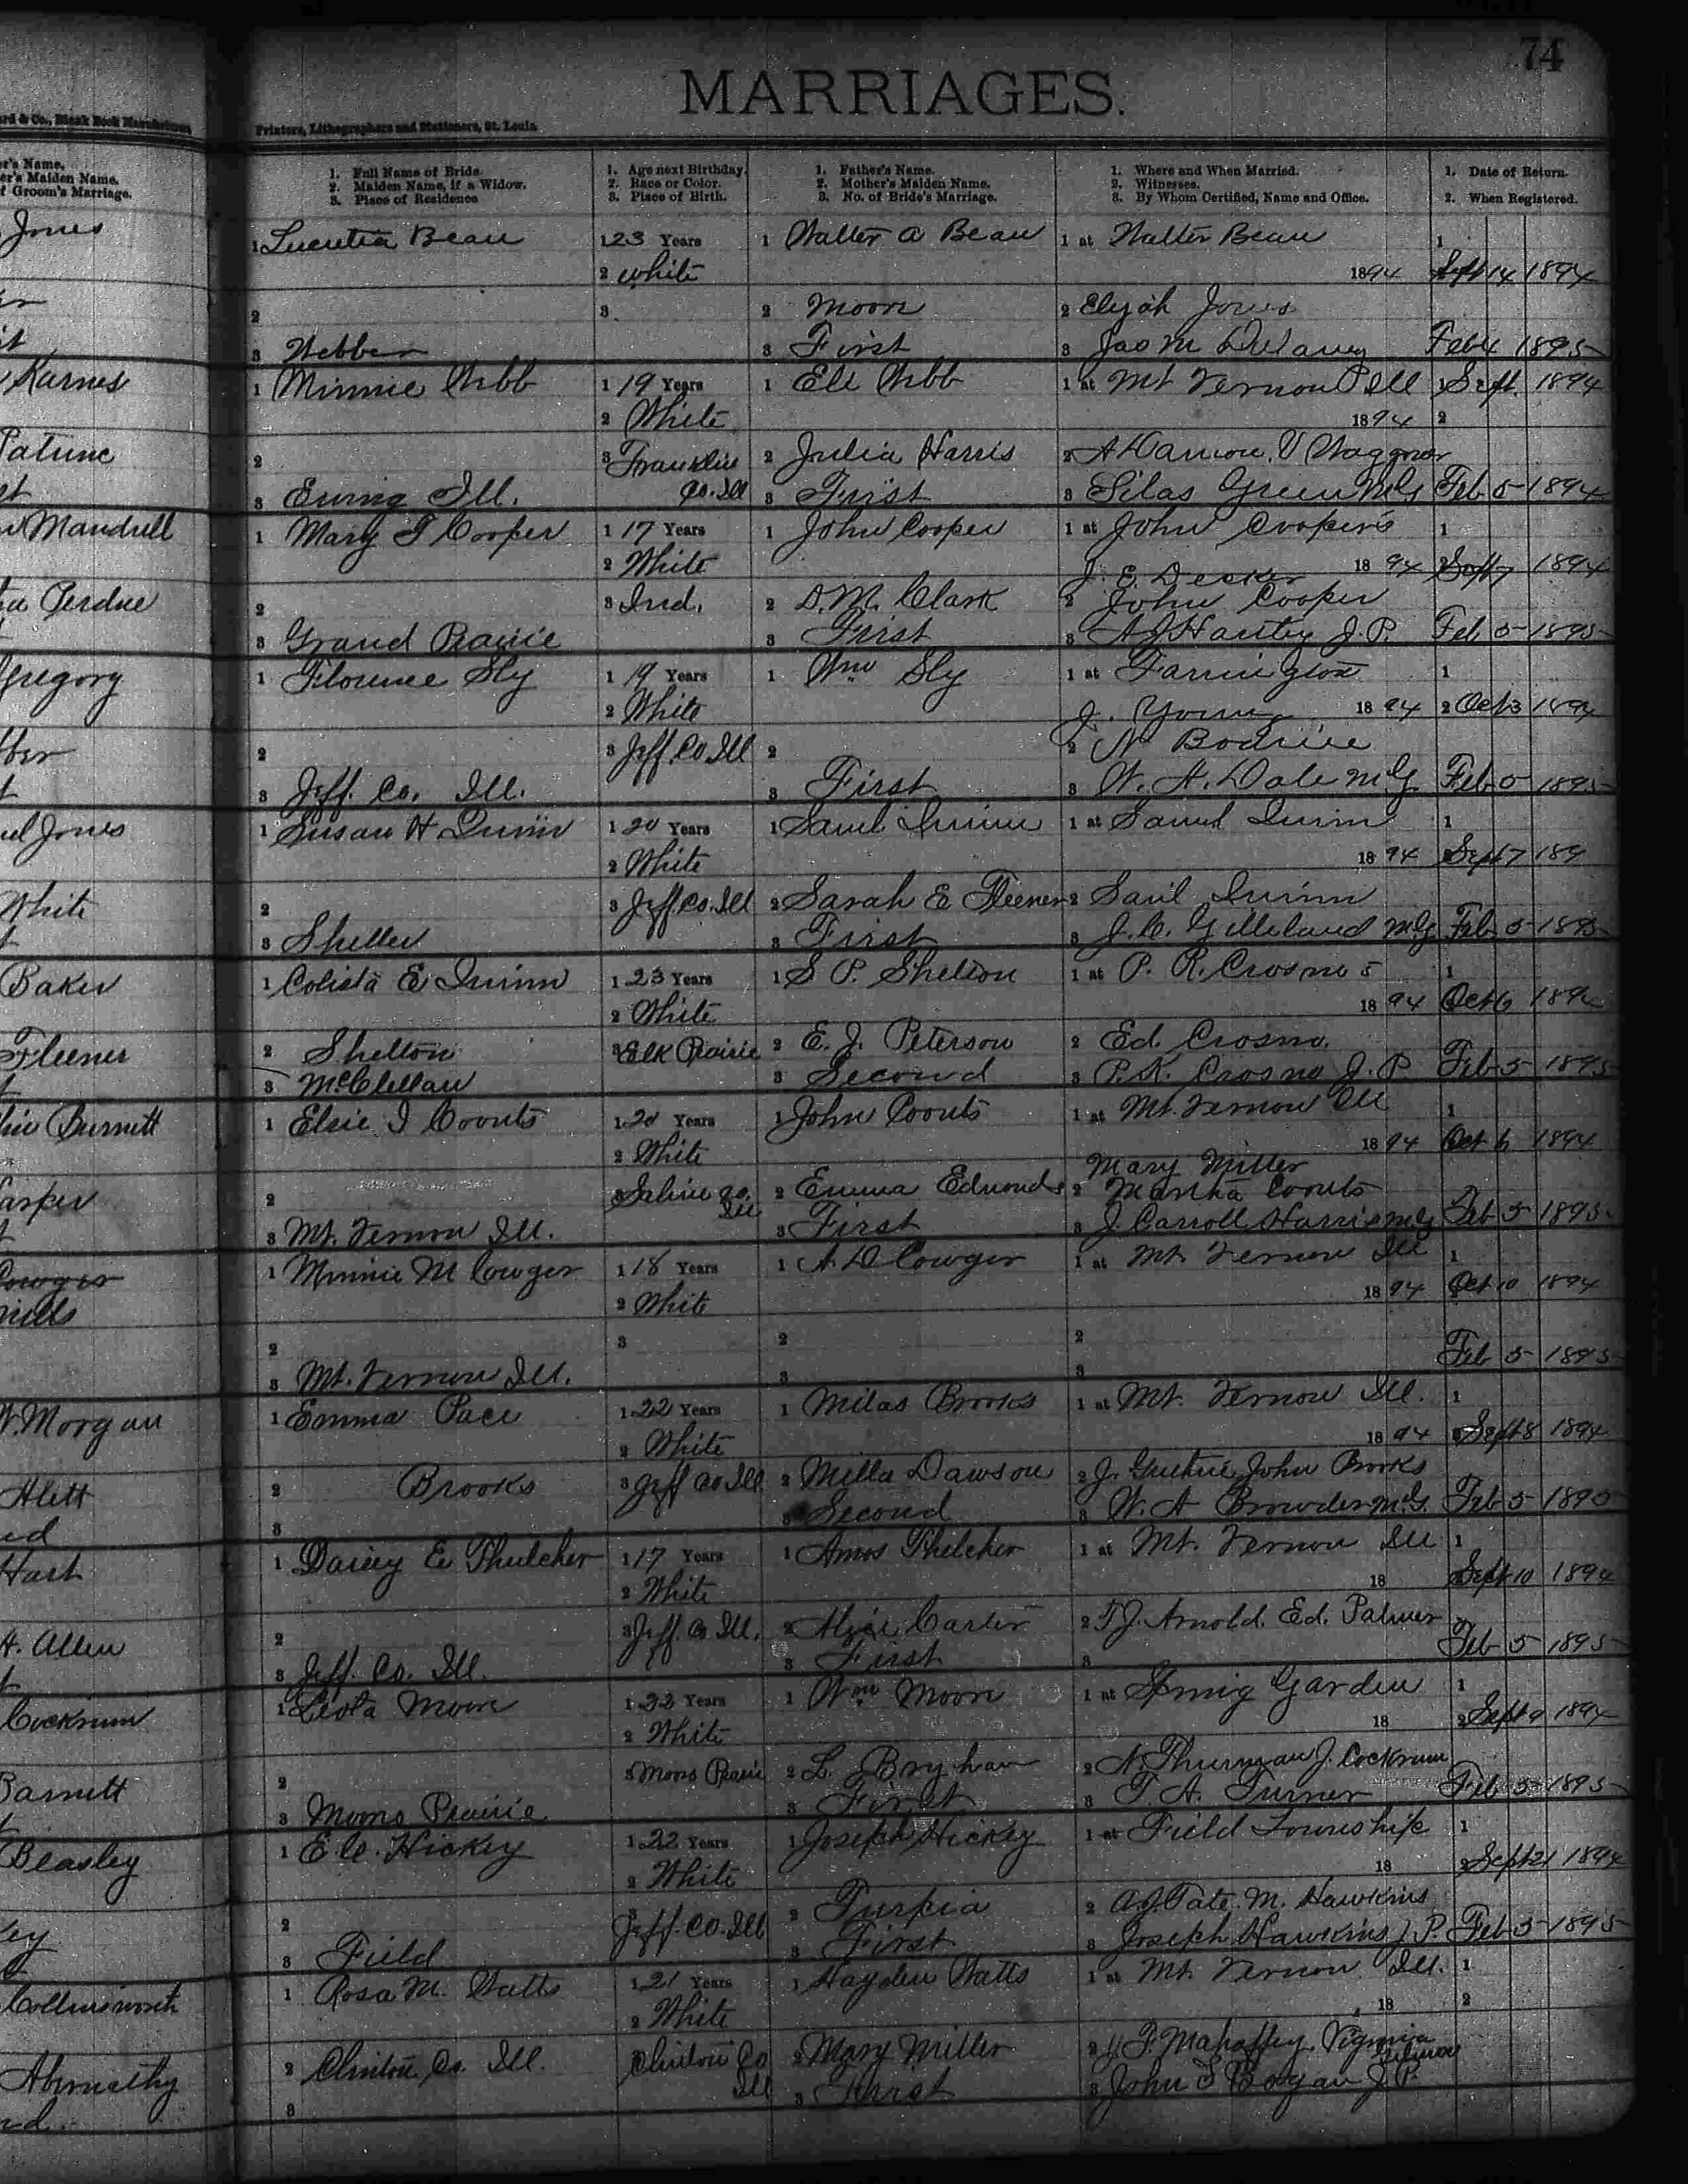 74
MARRIAGES.
Printers, Lithographers and Stationers, St. Louis.
r's Name.
er's Maiden Name.
f Groom's Marriage.
1. Full Name of Bride.
2. Maiden Name, if a Widow.
3. Place of Residence
1. Age next Birthday.
2. Race or Color.
3. Place of Birth.
1. Father's Name.
2. Mother's Maiden Name.
3. No. of Bride's Marriage.
1. Where and When Married.
2. Witnesses.
3. By Whom Certified, Name and Office.
1. Date of Return.
2. When Registered.
Jones
1 Lucretia Bean 1 23 Years 1 Walter A Bean 1 at Walter Bean 1
2 White 1894 Sept 14 1894
2 3 2 Moore 2 Elijah Jones
3 Webber 3 First 3 Jas M Dulaney Feb 4 1895
Karnes 1 Minnie Webb 1 19 Years 1 Eli Webb 1 at Mt Vernon Ill 1 Sept. 1894
2 White 1894 2
2 3 Franklin 2 Julia Harris 2
3 Ewing Ill. Co. Ill 3 First 3 Silas Green M.G Feb 5 1894
Mandrell 1 Mary Cooper 1 17 Years 1 John Cooper 1 at John Cooper's 1
2 White J. E. Decker 18 94 Sept 7 1894
Perdue 2 3 Ind. 2 D. M. Clark 2 John Cooper
3 Grand Prairie 3 First 3 J.P. Feb 5 1895
Gregory 1 Florence Sly 1 19 Years 1 Wm Sly 1 at Farrington 1
2 White J. Young 18 94 2 Oct 3 1894
2 3 Jeff Co Ill 2 2 N Bodine
3 Jeff. Co. Ill. 3 First 3 W. A. Dale M.G Feb 5 1895
Jones 1 Susan H Quinn 1 20 Years 1 Saml Quinn 1 at Saml Quinn 1
2 White 18 94 Sept 7 189
White 2 3 Jeff. Co. Ill 2 Sarah E Fleener 2 Saml Quinn
3 Shiller 3 First 3 J. C. Gilleland M.G Feb 5 1895
Baker 1 Colista E Quinn 1 23 Years 1 S P. Shelton 1 at P. R. Crosno s 1
2 White 18 94 Oct 6 1894
Fleener 2 Shelton 3 Elk Prairie 2 E. J. Peterson 2 Ed Crosno.
3 McClellan 3 Second 3 P. R. Crosno J. P. Feb 5 1895
Burnett 1 Elsie I Coonts 1 20 Years 1 John Coonts 1 at Mt. Vernon Ill 1
2 White 18 94 Oct 6 1894
Mary Miller
2 3 Saline Co. 2 Emma Edmonds 2 Martha Coonts
3 Mt. Vernon Ill. Ill 3 First 3 J. Carroll Harris M.G Feb 5 1895
Cowger 1 Minnie M Cowger 1 18 Years 1 A. D Cowger 1 at Mt. Vernon Ill 1
2 White 18 94 Oct 10 1894
2 3 2 2
3 Mt. Vernon Ill. 3 3 Feb 5 1895
Morgan 1 Emma Pace 1 22 Years 1 Milas Brooks 1 at Mt. Vernon Ill. 1
2 White 18 94 Sept 8 1894
2 Brooks 3 Jeff Co Ill 2 Milla Dawson 2 J. Guthrie, John Brooks
3 3 Second 3 W. A Browder M.G. Feb 5 1895
1 Daisey E Thulcher 1 17 Years 1 Amos Thelcher 1 at Mt. Vernon Ill 1
2 White 18 Sept 10 1894
Allen 2 3 Jeff. Co Ill. 2 Alice Carter 2 T J. Arnold. Ed. Palmer
3 Jeff. Co. Ill. 3 First 3 Feb 5 1895
Cockrum 1 Leota Moore 1 22 Years 1 Wm Moore 1 at Spring Garden 1
2 White 18 2 Sept 9 1894
Barnett 2 3 Moores Prairie 2 L. Bryhan 2 N. Thurman J. Cockrum
3 Moores Prairie 3 First 3 T. A. Turner Feb 5 1895
Beasley 1 E. C. Hickey 1 22 Years 1 Joseph Hickey 1 at Field Township 1
2 White 18 2 Sept 21 1894
2 3 Jeff. Co. Ill 2 Turpia 2 A J. Tate. M. Hawkins
3 Field 3 First 3 Joseph Hawkins J. P. Feb 5 1895
Collinsworth 1 Rosa M. Watts 1 21 Years 1 Hayden Watts 1 at Mt. Vernon Ill. 1
2 White 18 2
Abernathy 2 Clinton Co. Ill. 3 Clinton Co 2 Mary Miller 2 Mahaffey.
3 Ill 3 First 3 John S Bogan J. P.